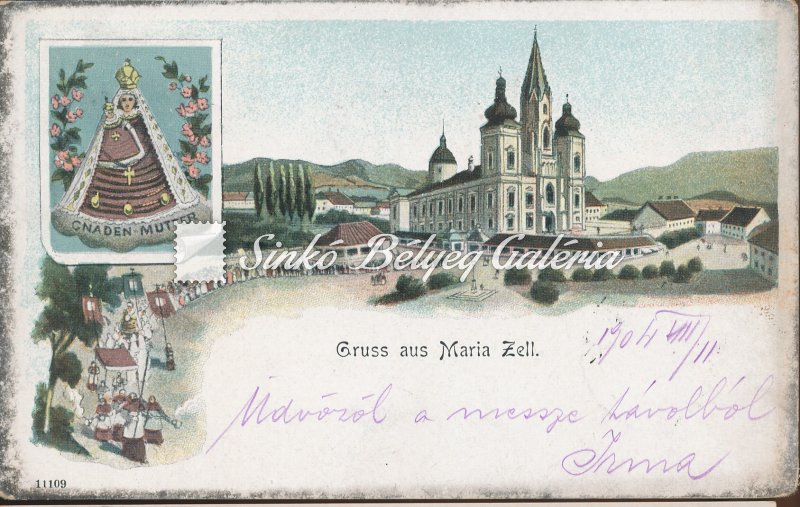 GNADEN-MUTTER
Sinkó Bélyeg Galéria
Gruss aus Maria Zell.
1904 VIII/11
Üdvözöl a messze távolból
Irma
11109